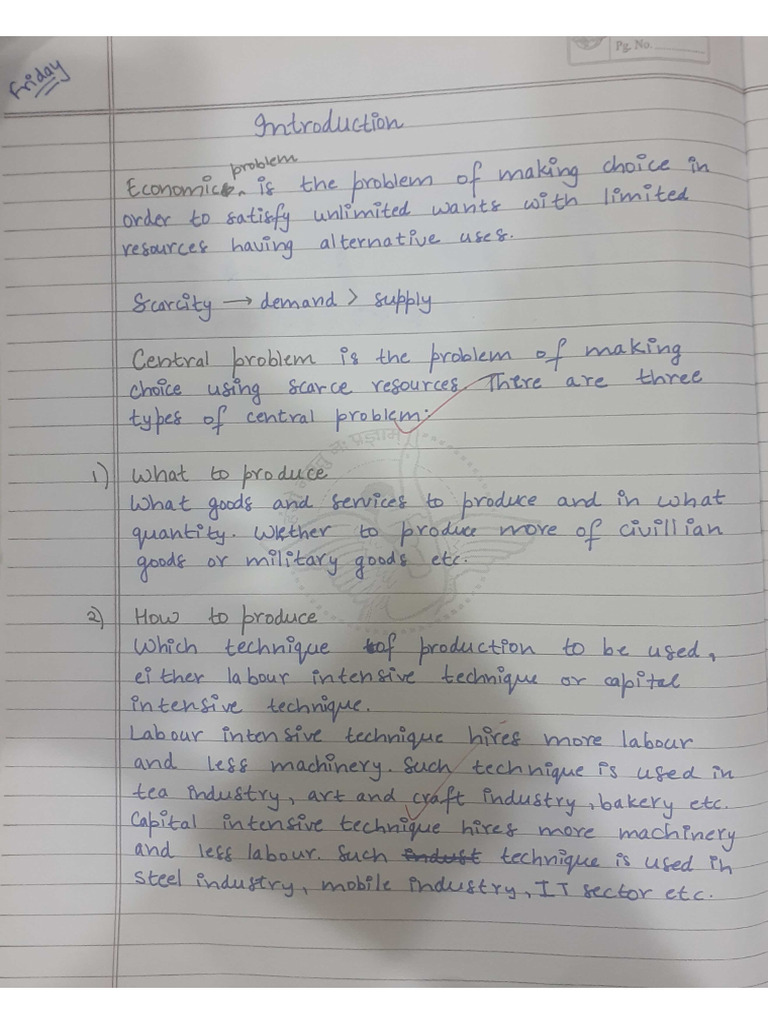 Pg. No.
Friday
Introduction
problem
Economics. is the problem of making choice in
order to satisfy unlimited wants with limited
resources having alternative uses.
Scarcity → demand > supply
Central problem is the problem of making
choice using scarce resources. There are three
types of central problem:
1) What to produce
What goods and services to produce and in what
quantity. Wether to produce more of civillian
goods or military goods etc.
2) How to produce
Which technique of production to be used,
either labour intensive technique or capital
intensive technique.
Labour intensive technique hires more labour
and less machinery. Such technique is used in
tea industry, art and craft industry, bakery etc.
Capital intensive technique hires more machinery
and less labour. Such indust technique is used in
steel industry, mobile industry, IT sector etc.